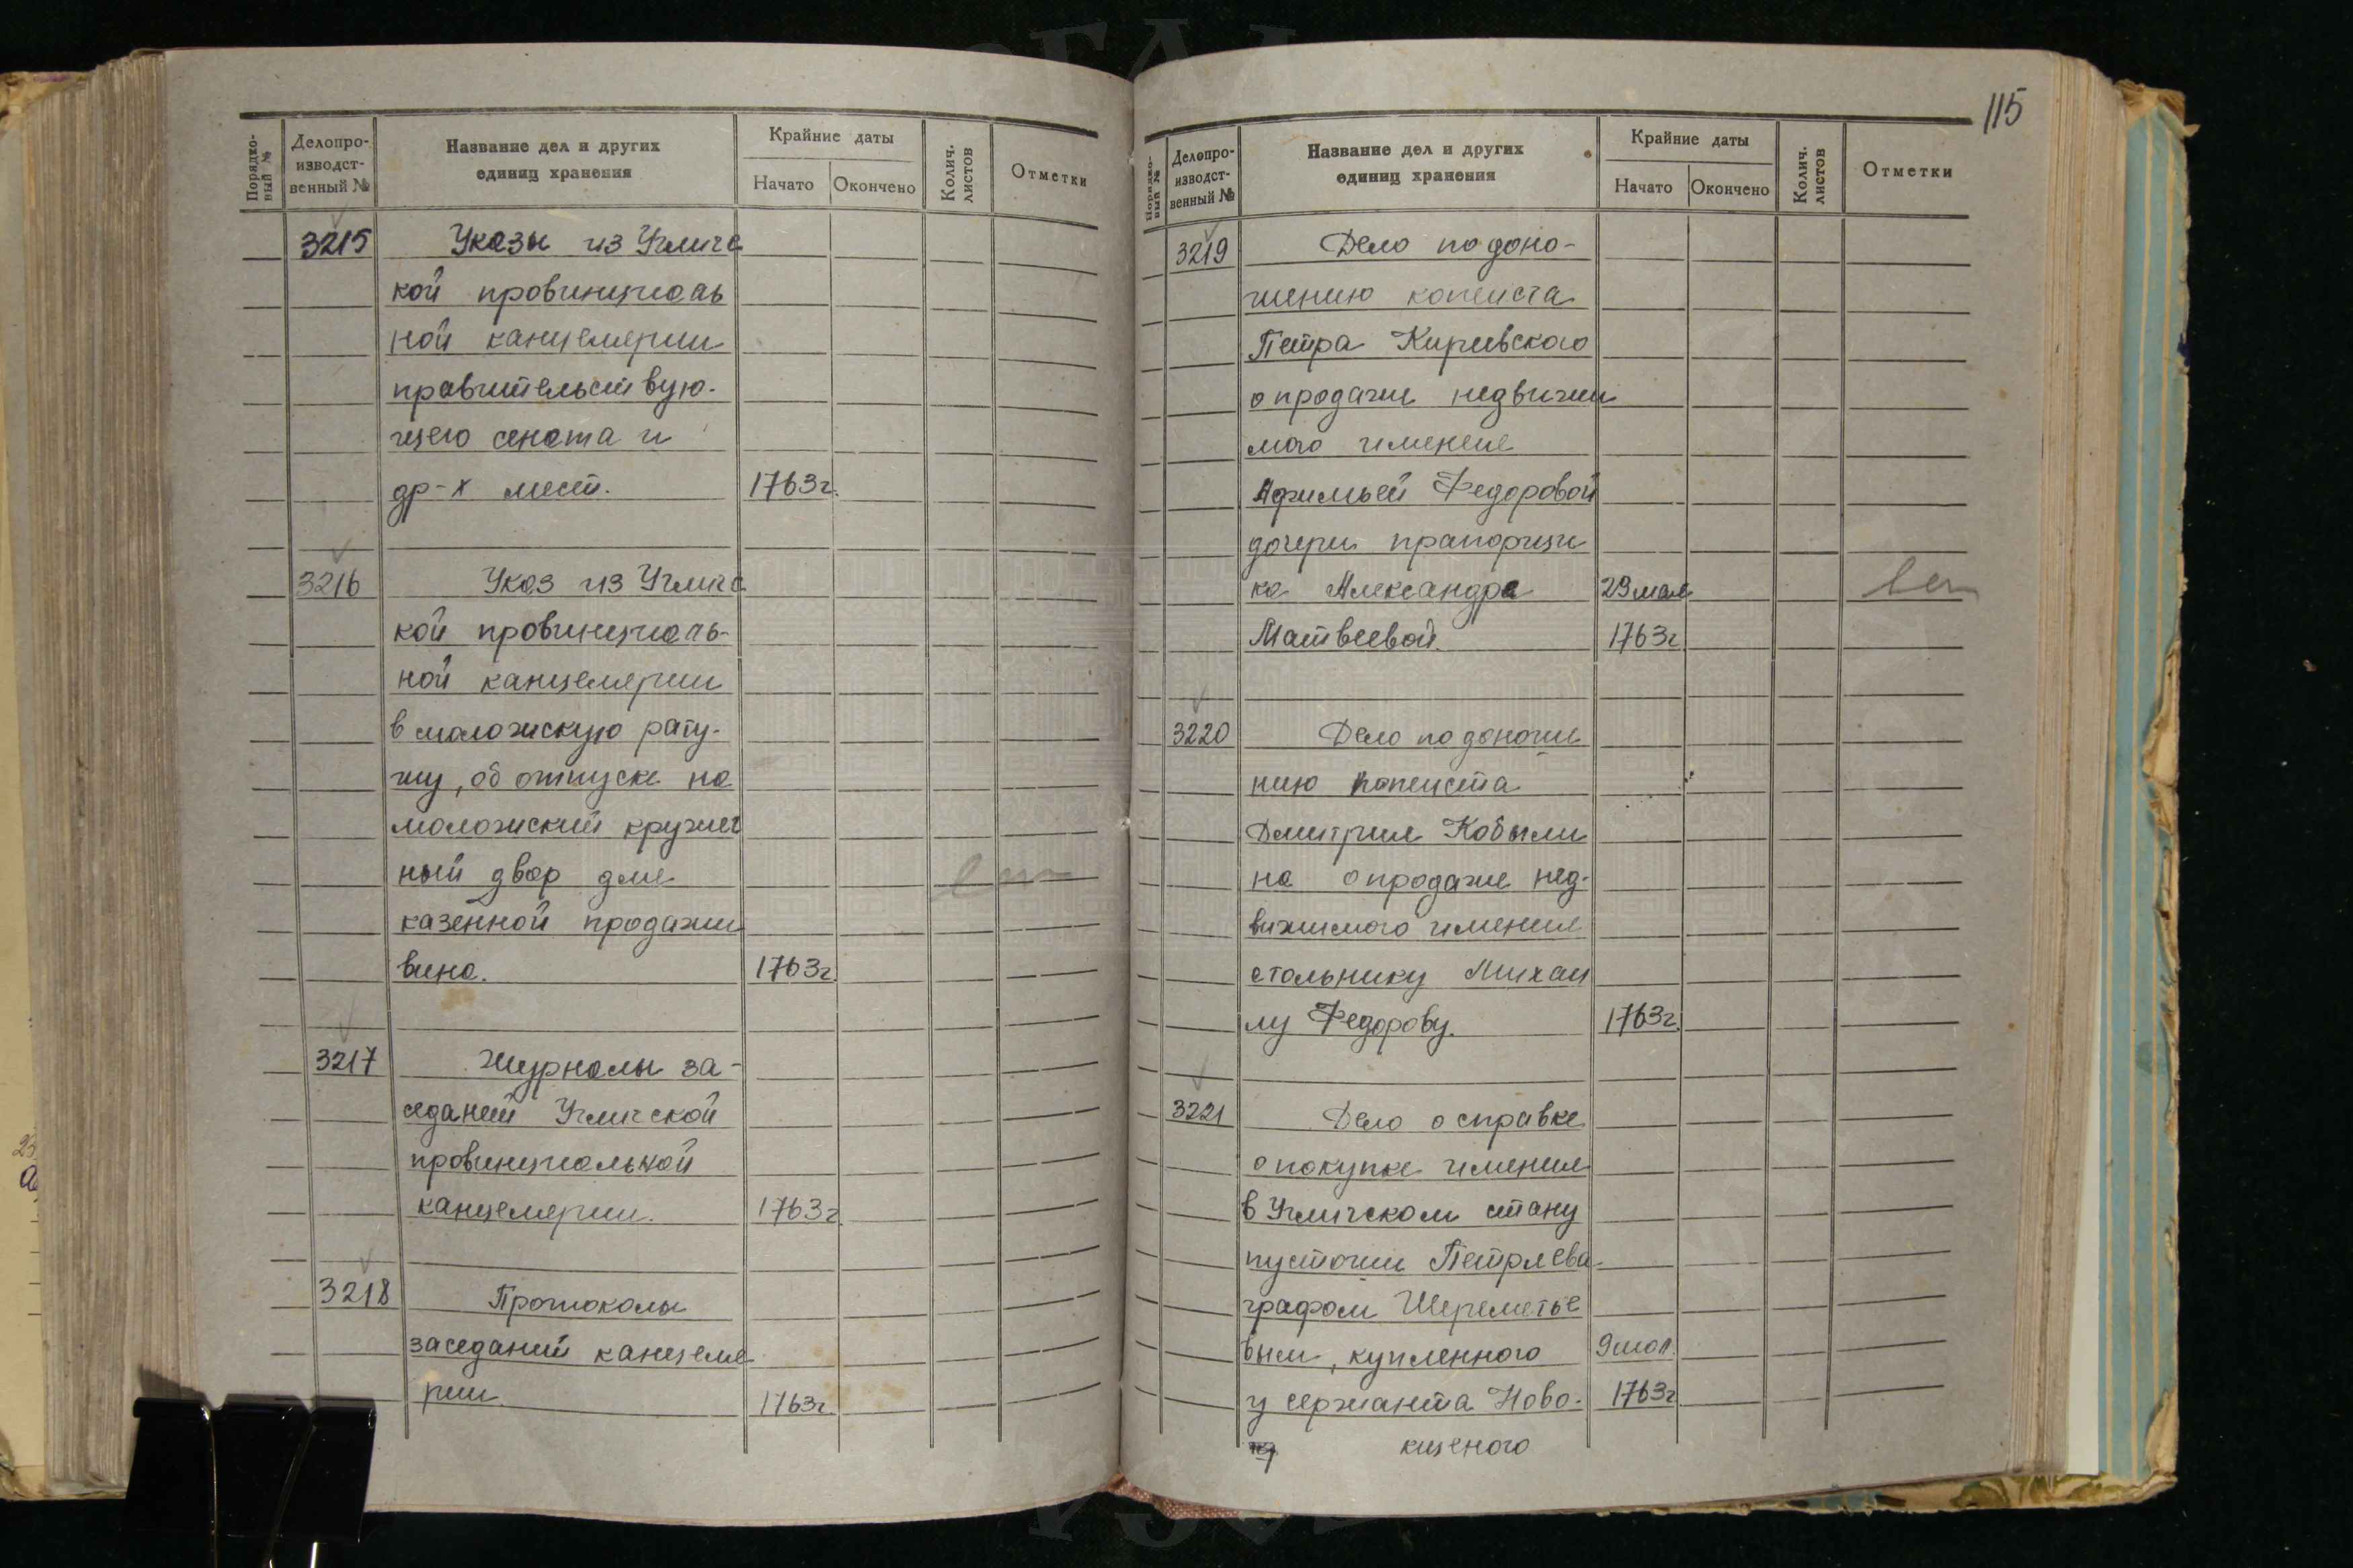 115
Порядко-
вый №
Делопро-
изводст-
венный №
Название дел и других
единиц хранения
Крайние даты
Начато
Окончено
Колич.
листов
Отметки
3215 Указы из Угличс
кой провинциаль
ной канцелярии
правительствую-
щего сената и
др-х мест. 1763г.
3216 Указ из Угличс
кой провинциаль-
ной канцелярии
в моложскую рату-
шу, об отпуске на
моложский кружеч
ный двор для
казенной продажи
вина. 1763г.
3217 Журналы за-
седаний Угличской
провинциальной
канцелярии. 1763г.
3218 Протоколы
заседаний канцеля
рии. 1763г.
Порядко-
вый №
Делопро-
изводст-
венный №
Название дел и других
единиц хранения
Крайние даты
Начато
Окончено
Колич.
листов
Отметки
3219 Дело по доно-
шению копеиста
Петра Киривского
о продажи недвижи
мого имения
Афимьей Федоровой
дочери прапорщи
ка Александра 29 мая
Матвеевой. 1763г
3220 Дело по доноше
нию копеиста
Дмитрия Кобыли
на о продаже нед-
вижимого имения
стольнику Михаи
лу Федорову. 1763г.
3221 Дело о справке
о покупке имения
в Угличском стану
пустоши Петряева
графом Шереметье
вым, купленного 9 мая.
у сержанта Ново- 1763г
кщеного